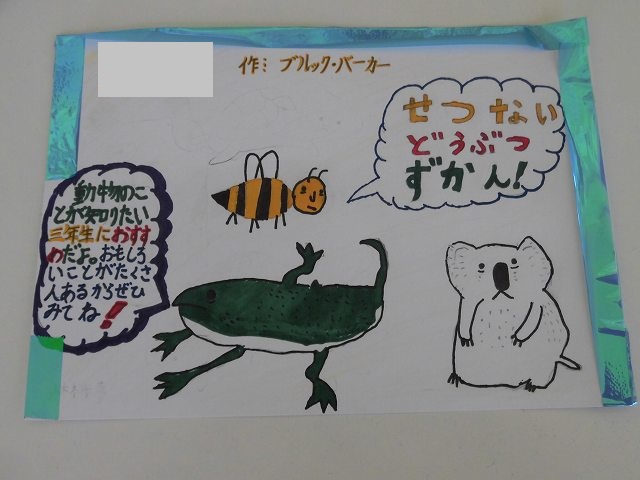 作：ブルック・バーカー
せつない
どうぶつ
ずかん!
動物のこ
とが知りたい
三年生におすす
めだよ。おもしろ
いことがたくさ
んあるからぜひ
みてね!